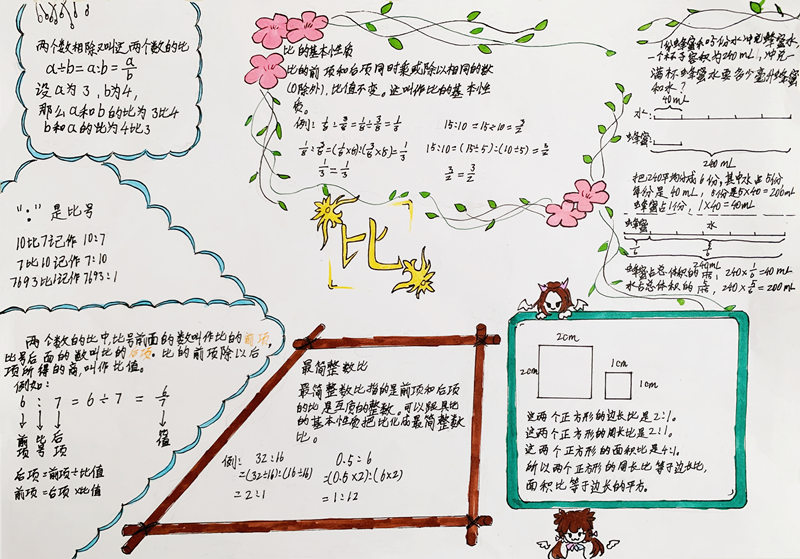 两个数相除又叫这两个数的比
a÷b=a:b=a/b
设a为3,b为4,
那么a和b的比为3比4
b和a的比为4比3
比的基本性质
比的前项和后项同时乘或除以相同的数
(0除外),比值不变。这叫作比的基本性
质。
15:10=15÷10=3/2
15:10=(15÷5):(10÷5)=3/2
1/3=1/3
3/2=3/2
1份蜂蜜水和5份水冲兑蜂蜜水,
一个杯子容积为240mL,冲兑一
满杯蜂蜜水要多少毫升蜂蜜
和水?
40mL
水:
蜂蜜:
240mL
把240平均分成6份,其中水占5份,
每份是40mL,5份是5×40=200mL
蜂蜜占1份,1×40=40mL
蜂蜜 水
1/6 5/6
240mL
蜂蜜占总体积的1/6,240×1/6=40mL
水占总体积的5/6,240×5/6=200mL
“:”是比号
10比7记作10:7
7比10记作7:10
7693比1记作7693:1
比
两个数的比中,比号前面的数叫作比的前项,
比号后面的数叫比的后项。比的前项除以后
项所得的商,叫作比值。
例如:
6:7=6÷7=6/7
前项 比号 后项 比值
后项=前项÷比值
前项=后项×比值
最简整数比
最简整数比指的是前项和后项
的比是互质的整数。可以根据比
的基本性质把比化成最简整数
比。
例: 32:16 0.5:6
=(32÷16):(16÷16) =(0.5×2):(6×2)
=2:1 =1:12
2cm
2cm
1cm
1cm
这两个正方形的边长比是2:1。
这两个正方形的周长比是2:1。
这两个正方形的面积比是4:1。
所以两个正方形的周长比等于边长比,
面积比等于边长的平方。